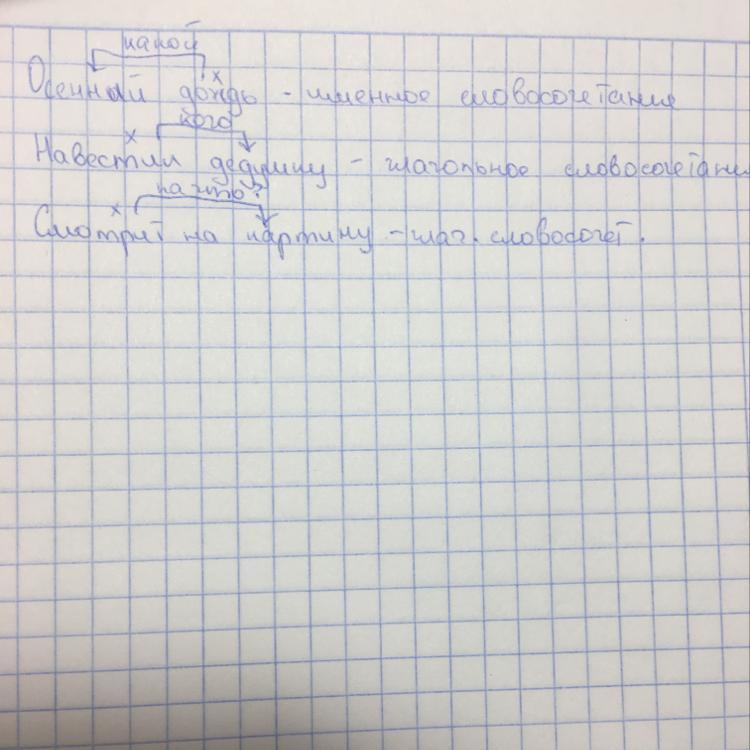 какой
х
Осенний дождь - именное словосочетание
х кого
Навестил дедушку - глагольное словосочетани
х на что?
Смотрит на картину - глаг. словосочет.